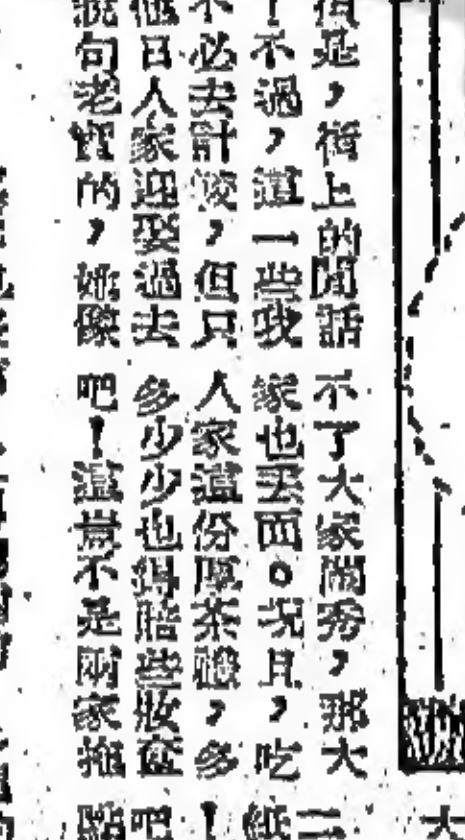 是,街上的閒話
!不過,這一些我
不必去計較,但只
他日人家迎娶過去
說句老實的,她像
不了大家閨秀,那大
家也丟面。況且,吃
人家這份厚茶禮,多
多少少也得賠些妝奩
吧!這豈不是兩家拖
大
二
紙
!
吧